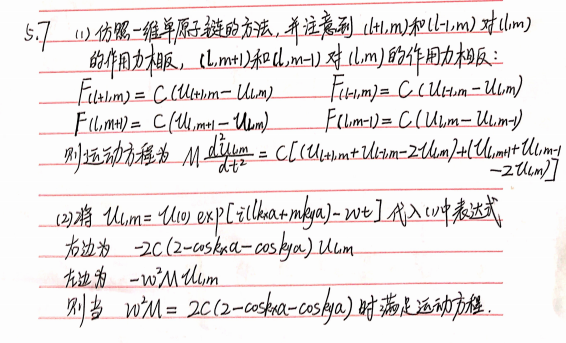 5.7 (1) 仿照一维单原子链的方法, 并注意到 (l+1,m)和(l-1,m)对(l,m)
的作用力相反, (l,m+1)和(l,m-1)对(l,m)的作用力相反:
F(l+1,m) = C(Ul+1,m - Ul,m) F(l-1,m) = C(Ul-1,m - Ul,m)
F(l,m+1) = C(Ul,m+1 - Ul,m) F(l,m-1) = C(Ul,m - Ul,m-1)
则运动方程为 M d²Ul,m/dt² = C[(Ul+1,m + Ul-1,m - 2Ul,m) + (Ul,m+1 + Ul,m-1
- 2Ul,m)]
(2)将 Ul,m = U(0) exp[i(lkxa + mkya) - wt] 代入(1)中表达式
右边为 -2C(2 - coskxa - coskya) Ul,m
左边为 -w²M Ul,m
则当 w²M = 2C(2 - coskxa - coskya) 时满足运动方程.